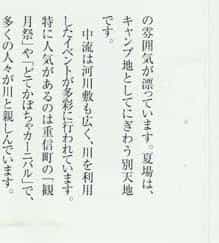 の雰囲気が漂っています。夏場は、
キャンプ地としてにぎわう別天地
です。
中流は河川敷も広く、川を利用
したイベントが多彩に行われています。
特に人気があるのは重信町の「観
月祭」や「どてかぼちゃカーニバル」で、
多くの人々が川と親しんでいます。